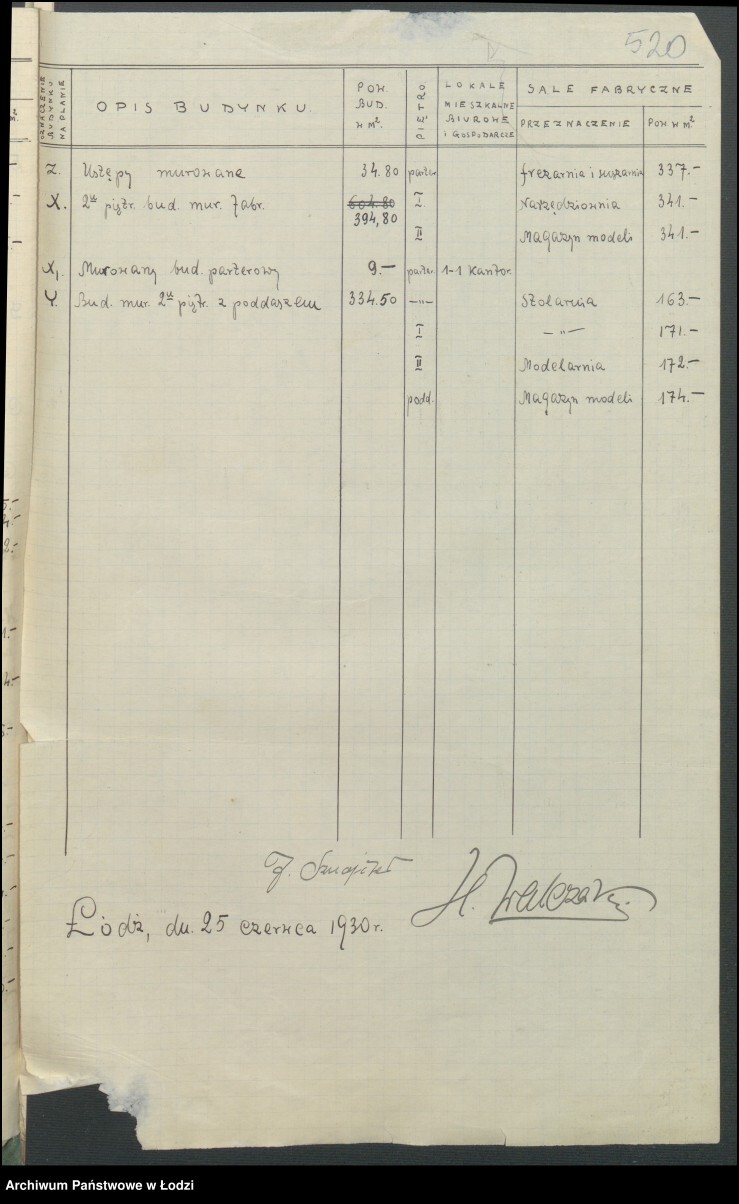 520
OZNACZENIE BUDYNKU NA PLANIE
OPIS BUDYNKU.
POW. BUD. W M².
PIĘTRO.
LOKALE MIESZKALNE BIUROWE I GOSPODARCZE
SALE FABRYCZNE
PRZEZNACZENIE POW. W M².
Z. Ustępy murowane 34.80 parter frezarnia i 337.-
X. 2u piętr. bud. mur. fabr. 604.80 I Narzędziownia 341.-
394,80
II Magazyn modeli 341.-
X₁. Murowany bud. parterowy 9.- parter. 1-1 Kantor.
Y. Bud. mur. 2u piętr. z poddaszem 334.50 -"- Stolarnia 163.-
I -"- 171.-
II Modelarnia 172.-
podd. Magazyn modeli 174.-
Łódź, dn. 25 czerwca 1930 r.
Archiwum Państwowe w Łodzi